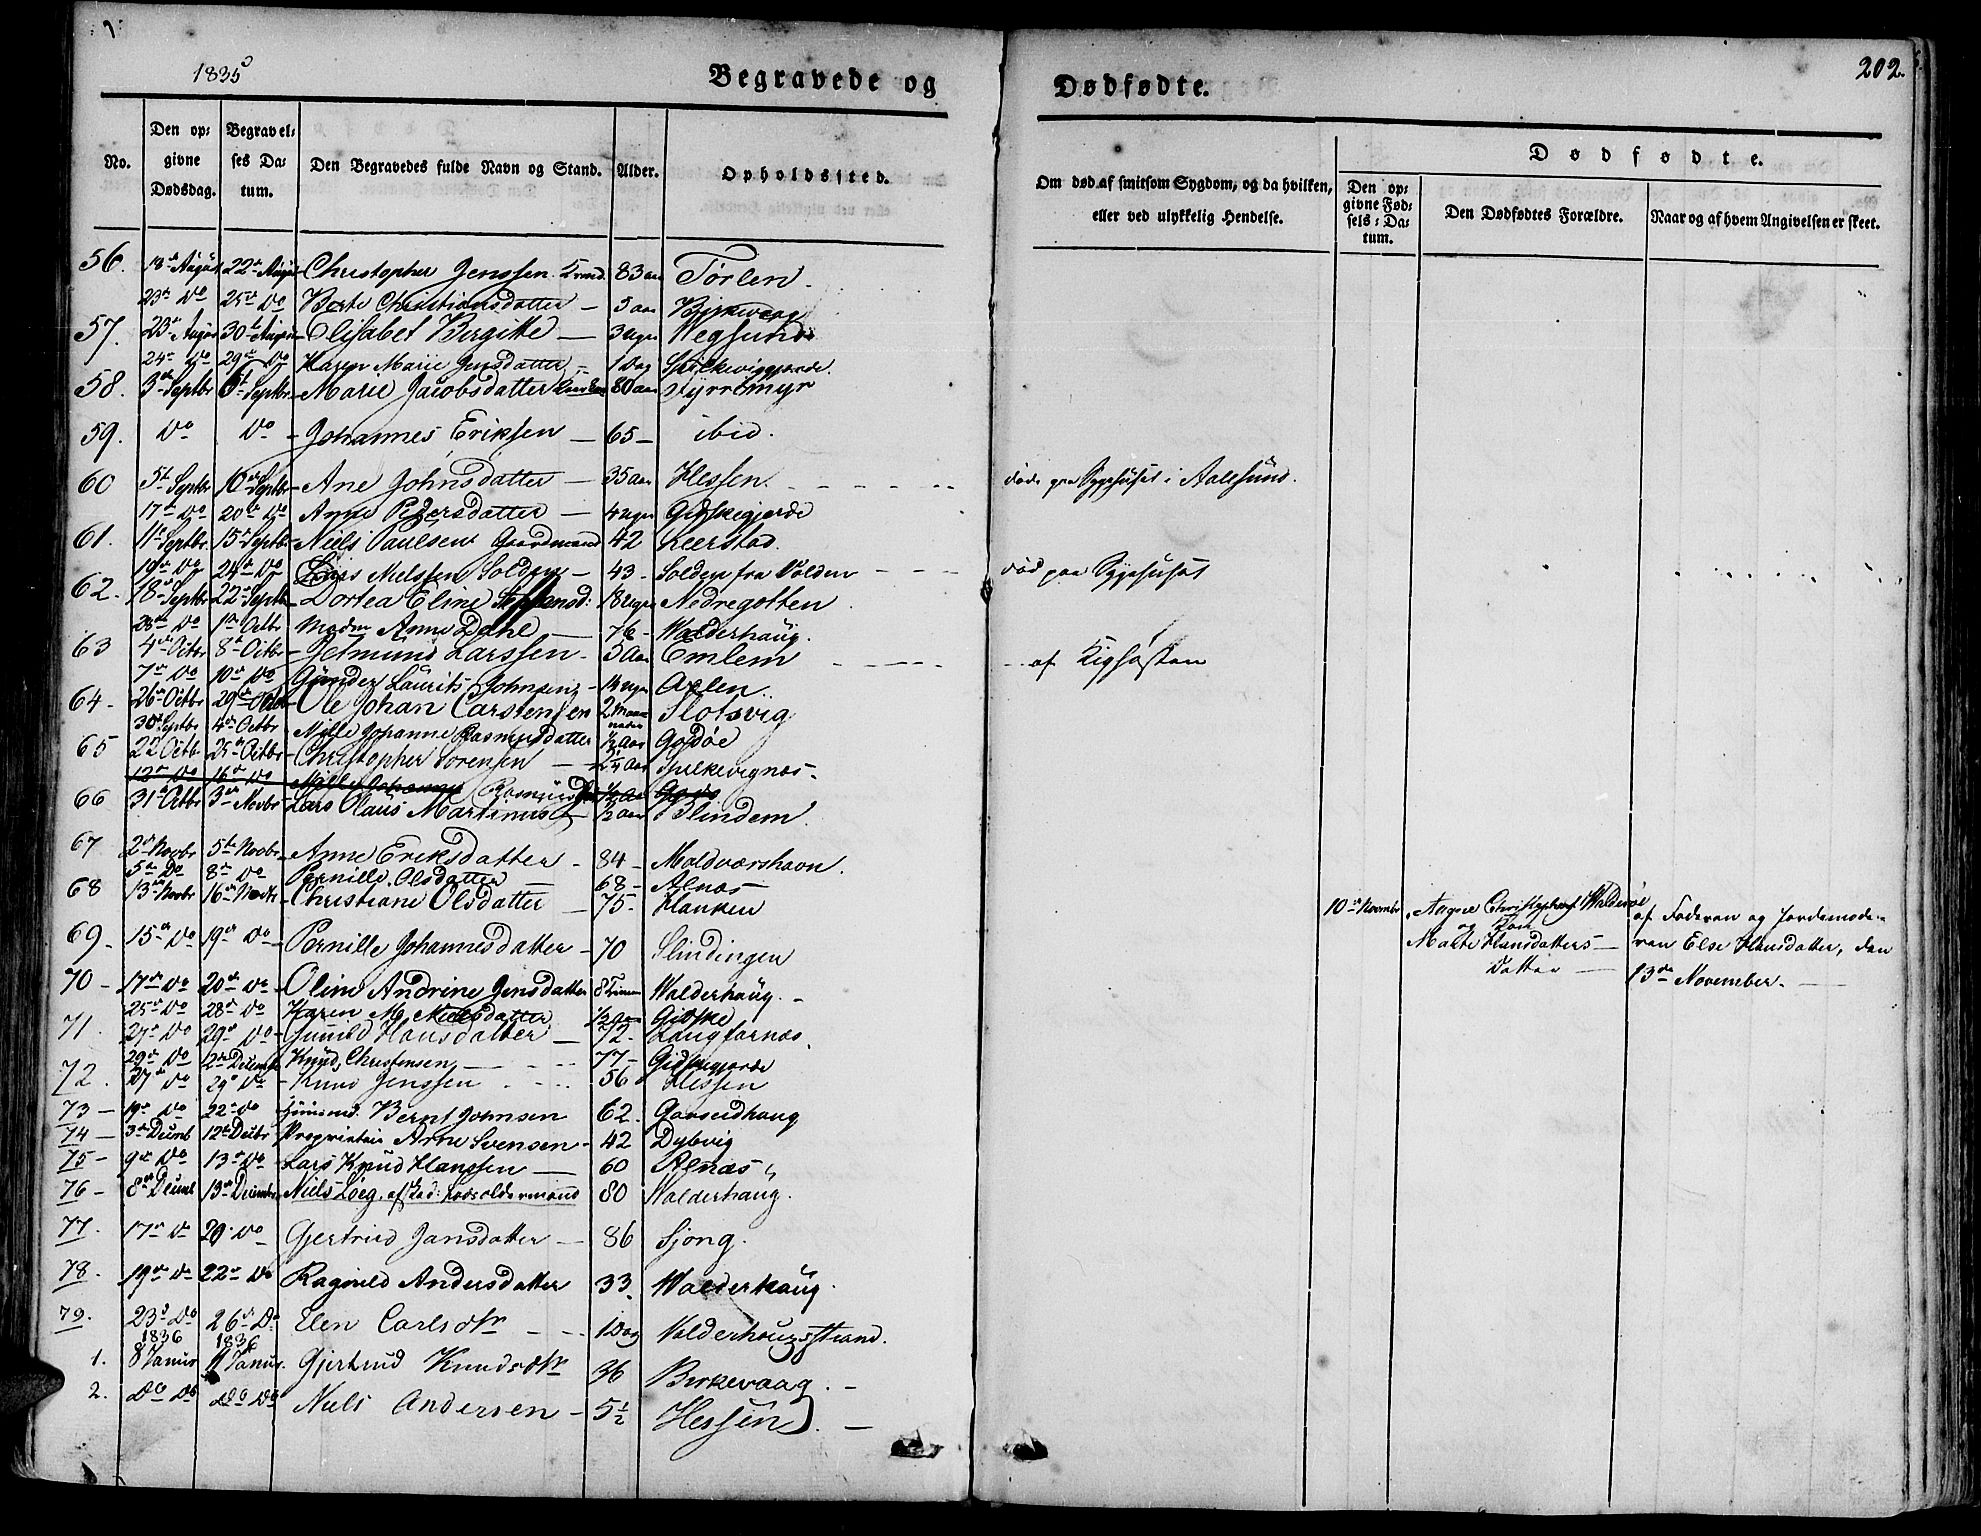 1835
Begravede og
Dødfødte.
202.
No.
Den op=
givne
Dødsdag.
Begravel=
ses Da=
tum.
Den Begravedes fulde Navn og Stand.
Alder.
Opholdssted.
Om død af smitsom Sygdom, og da hvilken,
eller ved ulykkelig Hendelse.
Dødfødte.
Den op=
givne Fød=
sels=Da=
tum.
Den Dødfødtes Forældre.
Naar og af hvem Angivelsen er skeet.
56. 18de August 22de August Christopher Jenssen 83 aar Tørlen.
23de Do 25de Do Berte Christiansdatter – 3 aar Birkevaag
57. 23de August 30te August Elisabet Birgitte – 3 uger Wegsund
24de Do 29de Do Karen Marie Jensdatter – 1 Dag Spilkeviggjerde.
58. 3de Septbr 6te Septbr Marie Jacobsdatter 80 aar Myrremyr
59. Do Do – Johannes Eriksen – 65 – ibid.
60 5te Septbr 10de Septbr Ane Johnsdatter – 35 Aar Hessen. døde paa Sygehuset i Aalesund.
17de Do 20de Do Anne Petersdatter – 4 uger Gidskegjerde
61. 11te Septbr. 15de Septbr Niels Paulsen Gaardmand 42 Leerstad.
19de Do 24de Do Nielssen – 43 – fra Volden død paa Sygehuset
62. 18de Septbr 22de Septbr Dortea Eline 18 uger Nedregotten
28de Do 1ste Octbr Madm Anne Dahl – 76 – Walderhaug.
63 4de Octbr 8de Octbr Gjelmund Larssen – 3 Aar Emlem – af Kighosten
7de Do 10de Do Gunder Laurits Johnsen – 14 uger Axlen.
64 – 26de Octbr 29de Octbr Ole Johan Carstensen 2 Maaneder Slotsvig
30te Septbr 4de Octbr Nille Johanne Rasmusdatter ½ Aar Godøe
65 22 Octbr 25de Octbr Christopher Sørensen – 2¼ Aar Spilkevignæs.
12te Do 16de Do Nille Johanne Rasmusd ½ Aar Godø
66 31te Octbr 3de Novbr Lars Olaus Martinus – ½ aar Blindem.
67 2de Novbr 5te Novbr Anne Eriksdatter – 84 – Moldværshavn.
5te Do 8de Do Pernille Olsdatter – 68 – Alnæs
68 13de Novbr 16de Novbr Christiane Olsdatter – 75 – Hanken
10de Novembr Christophersen Walderøe
og
Marte Hansdatters –
Datter –
af Faderen og Jordemode=
ren Else Hansdatter, den
13de November. –
69. 15de Do 19de Do – Pernille Johannesdatter – 70 Slindingen
70 – 17de Do 20de Do – Oline Andrine Jensdatter 8 Timer Walderhaug. –
25de Do 28de Do Karen M. Nielsdatter ½ aar Gidske
71. 27de Do 29de Do – Gunild Hansdatter – 72 – Langfarnæs.
29de Do 2de Decemb Knud Christensen – 77 – Gidskegjerde
72. 27de Do 29de Do – Knud Jenssen 56 Hessen
73 – 19de Do 22de Do Huusmd. Bernt Johnsen 62. Gaaseidhaug
74 – 3de Decmb 12te Decbr Proprietair Arne Svensen – 42 Dybvig
75 – 9de Do 13de Do – Lars Knud Hanssen – 60 Alnæs
76 – 8de Decmb 13de Decembr Niels Løeg, afskd: Lodsoldermand 80 Walderhaug.
77. 17de Do 20 Do Gjertrud Jansdatter – 86 Sjong.
78. 19de Do 22de Do Ragnild Andersdatter 33. Walderhaug.
79. 23de Do 26de Do Elen Carlsdtr 1 Dag Valderhougsstrand.
1836 1836
1. 8 Janur 11 Janur. Gjertrud Knudsdtr 36 Birkevaag. –
2. Do Do Do Do Niels Andersen – 5½ Hessen. –